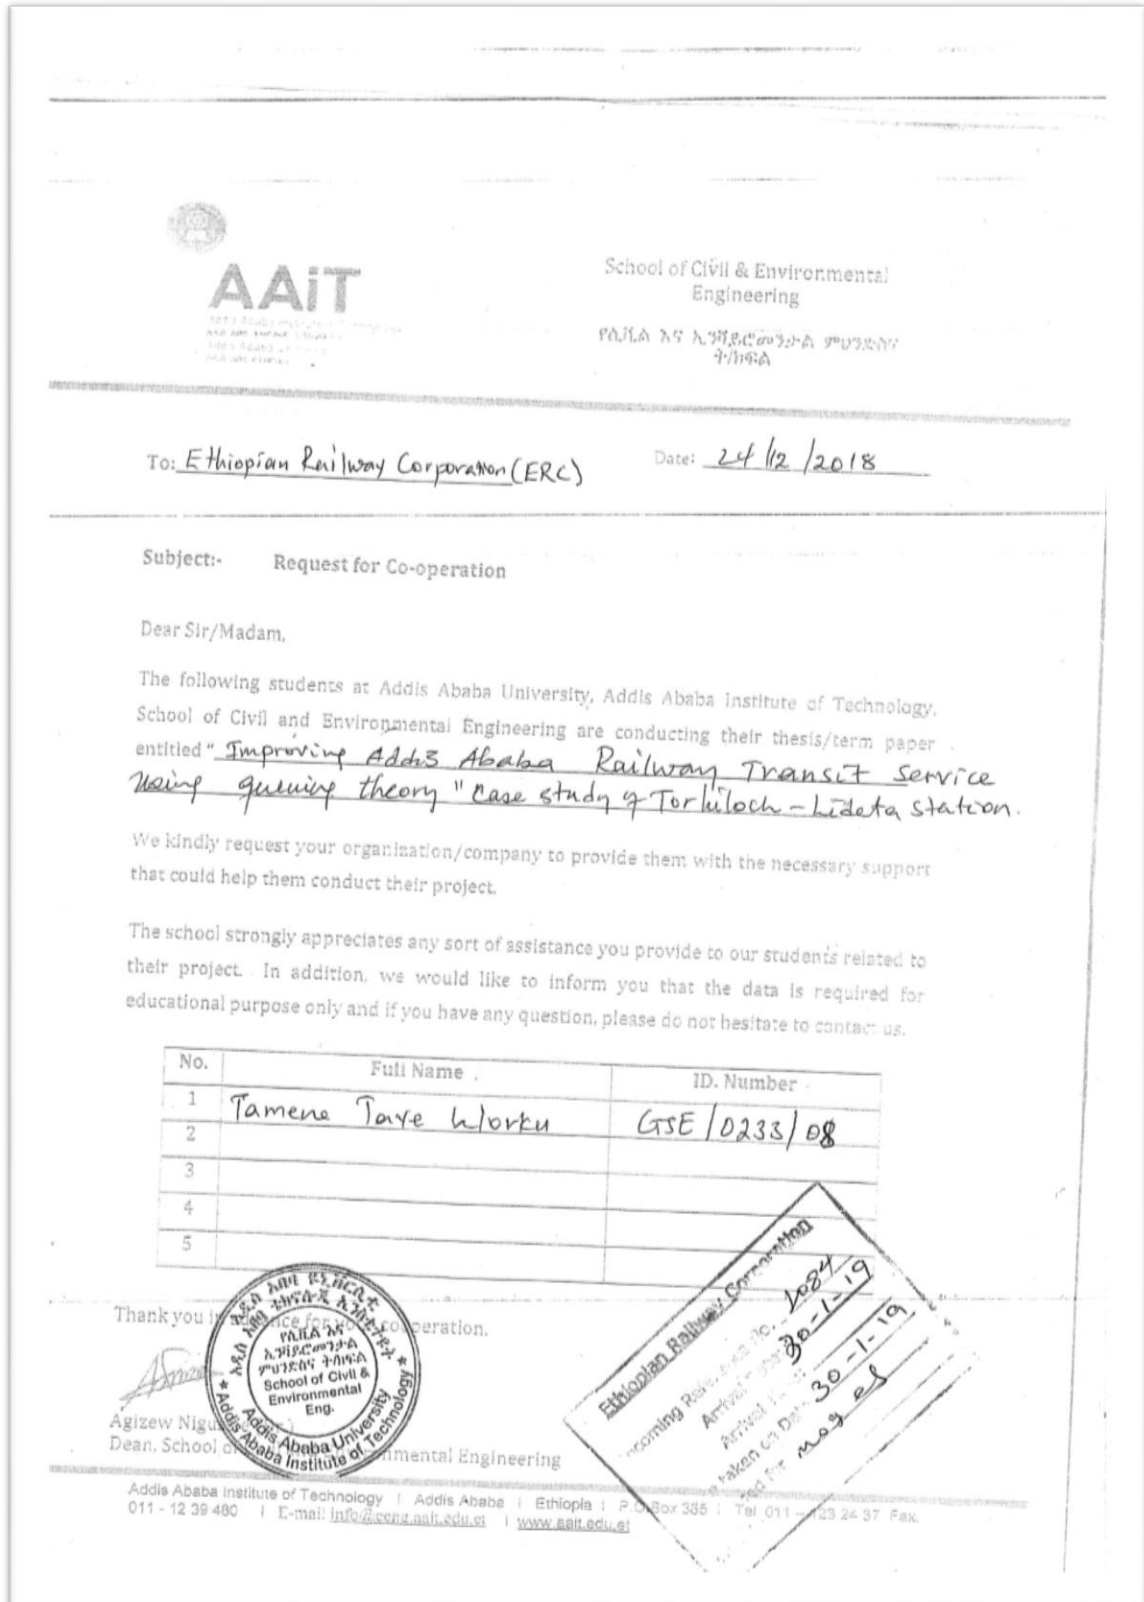 AAiT
School of Civil & Environmental
Engineering
የሲቪል እና ኢንቫይሮመንታል ምህንድስና
ት/ክፍል
To: Ethiopian Railway Corporation (ERC)
Date: 24/12/2018
Subject:- Request for Co-operation
Dear Sir/Madam,
The following students at Addis Ababa University, Addis Ababa Institute of Technology,
School of Civil and Environmental Engineering are conducting their thesis/term paper
entitled " Improving Addis Ababa Railway Transit Service
Using queuing theory " Case study of Torhiloch - Lideta station.
We kindly request your organization/company to provide them with the necessary support
that could help them conduct their project.
The school strongly appreciates any sort of assistance you provide to our students related to
their project. In addition, we would like to inform you that the data is required for
educational purpose only and if you have any question, please do not hesitate to contact us.
No. Full Name ID. Number
1 Tamene Taye Worku GSE/0233/08
2
3
4
5
Thank you for cooperation.
አዲስ አበባ ዩኒቨርሲቲ
አዲስ አበባ ቴክኖሎጂ ኢንስቲትዩት
የሲቪል እና
ኢንቫይሮመንታል
ምህንድስና ት/ክፍል
School of Civil &
Environmental
Eng.
Addis Ababa University
Addis Ababa Institute of Technology
Agizew
Dean, School Environmental Engineering
Ethiopian Railway Corporation
1084
Arrival 30-1-19
Arrival
taken on Date 30-1-19
Addis Ababa Institute of Technology | Addis Ababa | Ethiopia | P.O.Box 385 | Tel 011 – 123 24 37 Fax.
011 - 12 39 480 | E-mail info@ceng.aait.edu.et | www.aait.edu.et